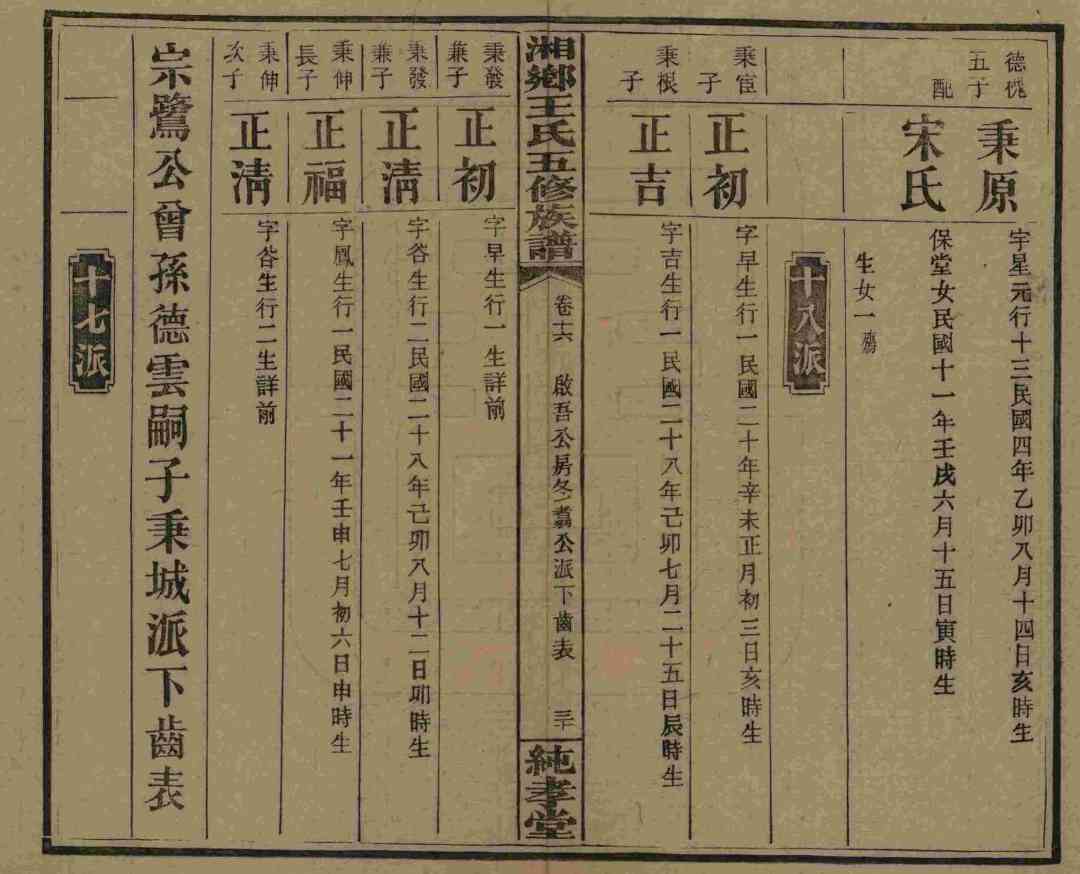 德槐
五子
秉原
字星元行十三民國四年乙卯八月十四日亥時生
配
宋氏
保堂女民國十一年壬戌六月十五日寅時生
生女一殤
十八派
秉宦
子
正初
字早生行一民國二十年辛未正月初三日亥時生
秉根
子
正吉
字吉生行一民國二十八年己卯七月二十五日辰時生
湘鄉王氏五修族譜
卷十六
啟吾公房冬翥公派下齒表
三十
純孝堂
秉發
兼子
正初
字早生行一生詳前
秉發
兼子
正清
字谷生行二民國二十八年己卯八月十二日卯時生
秉伸
長子
正福
字鳳生行一民國二十一年壬申七月初六日申時生
秉伸
次子
正清
字谷生行二生詳前
宗鷺公曾孫德雲嗣子秉城派下齒表
十七派